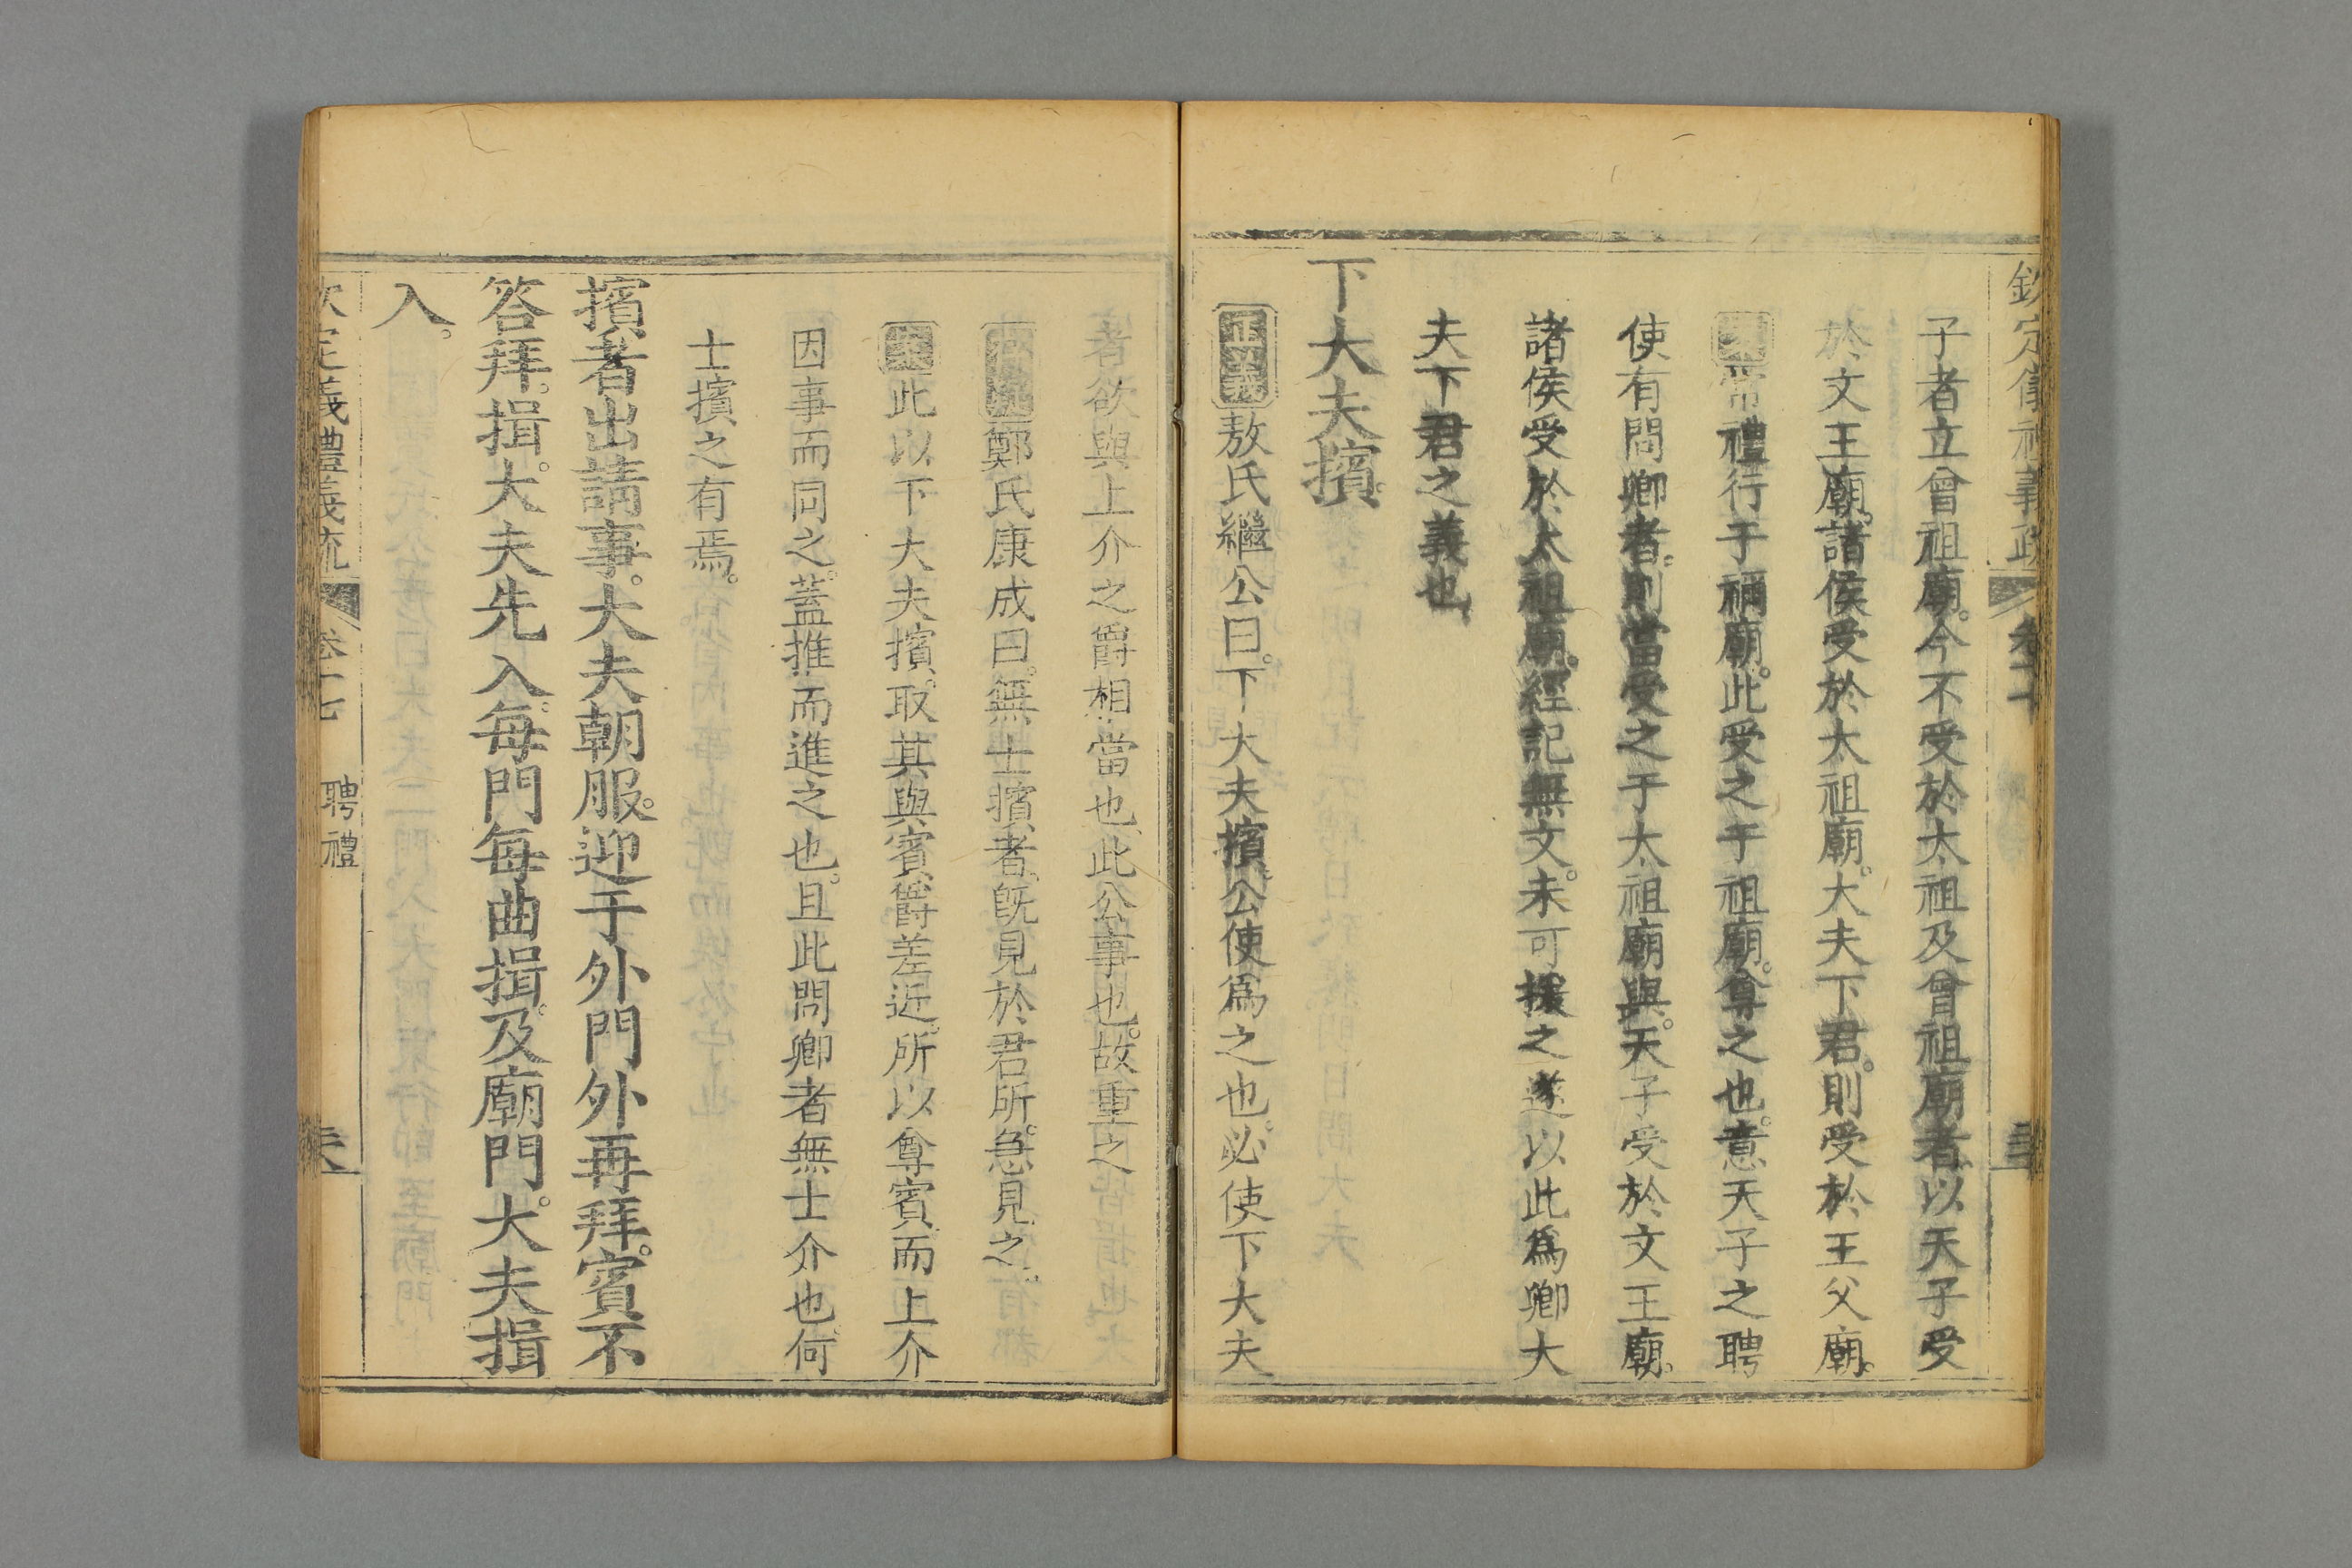 欽定儀禮義疏 卷十七
子者立曾祖廟。今不受於太祖及曾祖廟者、以天子受
於文王廟。諸侯受於太祖廟。大夫下君。則受於王父廟。
案常禮行于禰廟。此受之于祖廟。尊之也。意天子之聘
使有問卿者。則當受之于太祖廟與。天子受於文王廟。
諸侯受於太祖廟。經記無文。未可援之遂以此爲卿大
夫下君之義也
下大夫擯。
正義敖氏繼公曰。下大夫擯。公使爲之也。必使下大夫
者欲與上介之爵相當也、此公事也。故重之
鄭氏康成曰。無士擯者、旣見於君所。急見之。
案此以下大夫擯。取其與賓爵差近。所以尊賓而上介
因事而同之。蓋推而進之也。且此問卿者無士介也、何
士擯之有焉。
擯者出請事。大夫朝服。迎于外門外再拜。賓不
答拜。揖。大夫先入。每門每曲揖。及廟門。大夫揖
入。
欽定義禮義疏 卷十七 聘禮